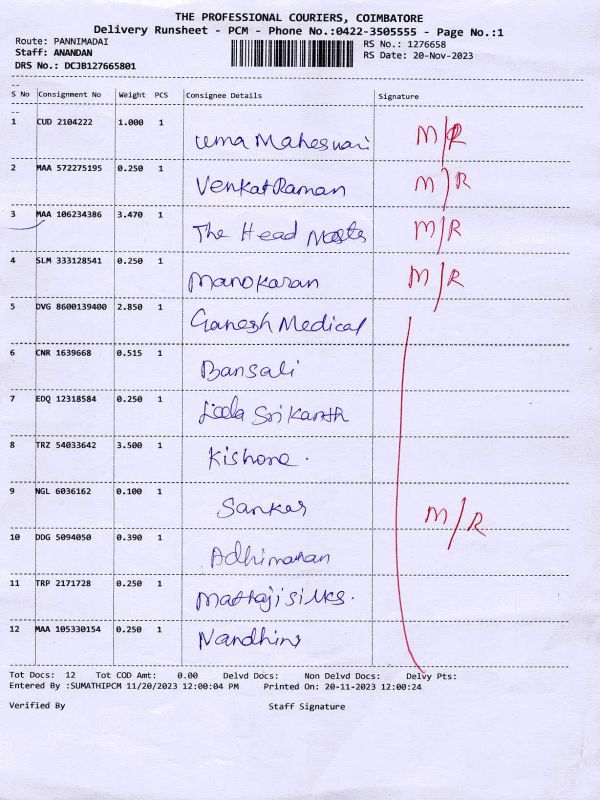 THE PROFESSIONAL COURIERS, COIMBATORE
Delivery Runsheet - PCM - Phone No.:0422-3505555 - Page No.:1
Route: PANNIMADAI RS No.: 1276658
Staff: ANANDAN RS Date: 20-Nov-2023
DRS No.: DCJB127665801
S No Consignment No Weight PCS Consignee Details Signature
1 CUD 2104222 1.000 1 Uma Maheswari M/R
2 MAA 572275195 0.250 1 VenkatRaman M/R
3 MAA 106234386 3.470 1 The Head Master M/R
4 SLM 333128541 0.250 1 Manokaran M/R
5 DVG 8600139400 2.850 1 Ganesh Medical
6 CNR 1639668 0.515 1 Bansali
7 EDQ 12318584 0.250 1 Srikanth
8 TRZ 54033642 3.500 1 Kishore.
9 NGL 6036162 0.100 1 Sankar M/R
10 DDG 5094050 0.390 1 Adhimaran
11 TRP 2171728 0.250 1 Mattaji Silks.
12 MAA 105330154 0.250 1 Nandhini
Tot Docs: 12 Tot COD Amt: 0.00 Delvd Docs: Non Delvd Docs: Delvy Pts:
Entered By :SUMATHIPCM 11/20/2023 12:00:04 PM Printed On: 20-11-2023 12:00:24
Verified By Staff Signature